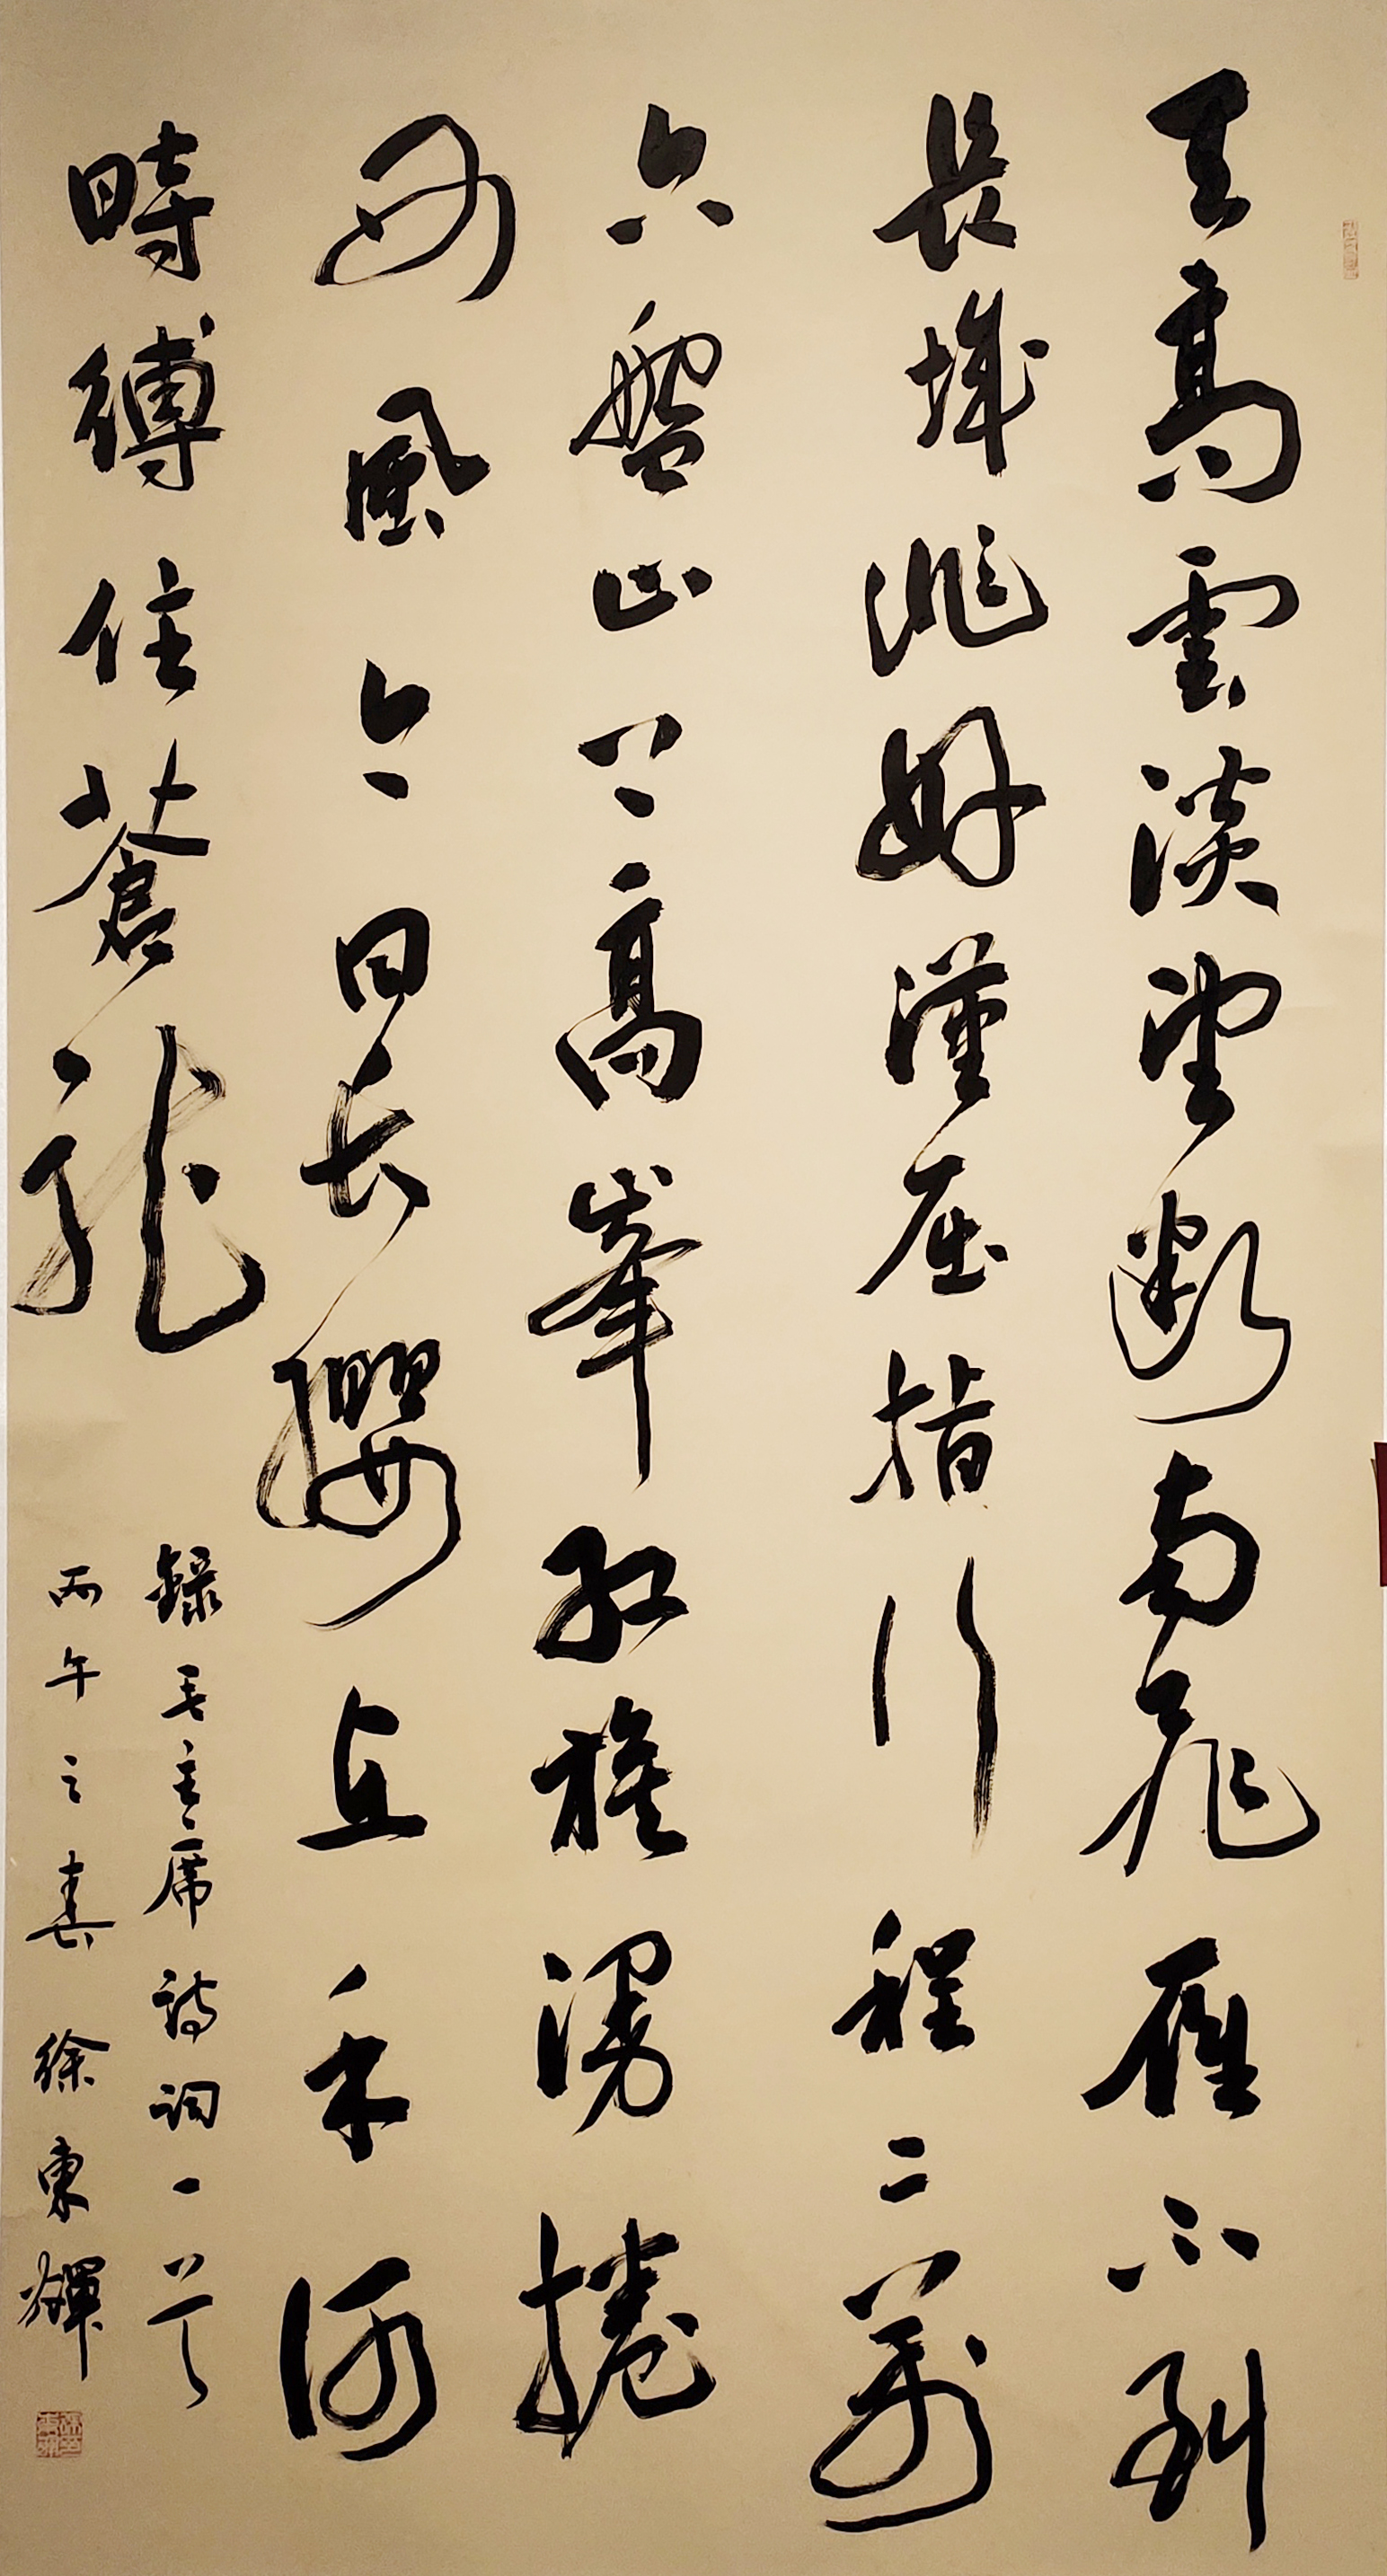 天高雲淡望斷南飛雁不到
長城非好漢屈指行程二萬
六盤山上高峯紅旗漫捲
西風今日長纓在手何
時縛住蒼龍
錄毛主席詩詞一首
丙午之春 徐東輝